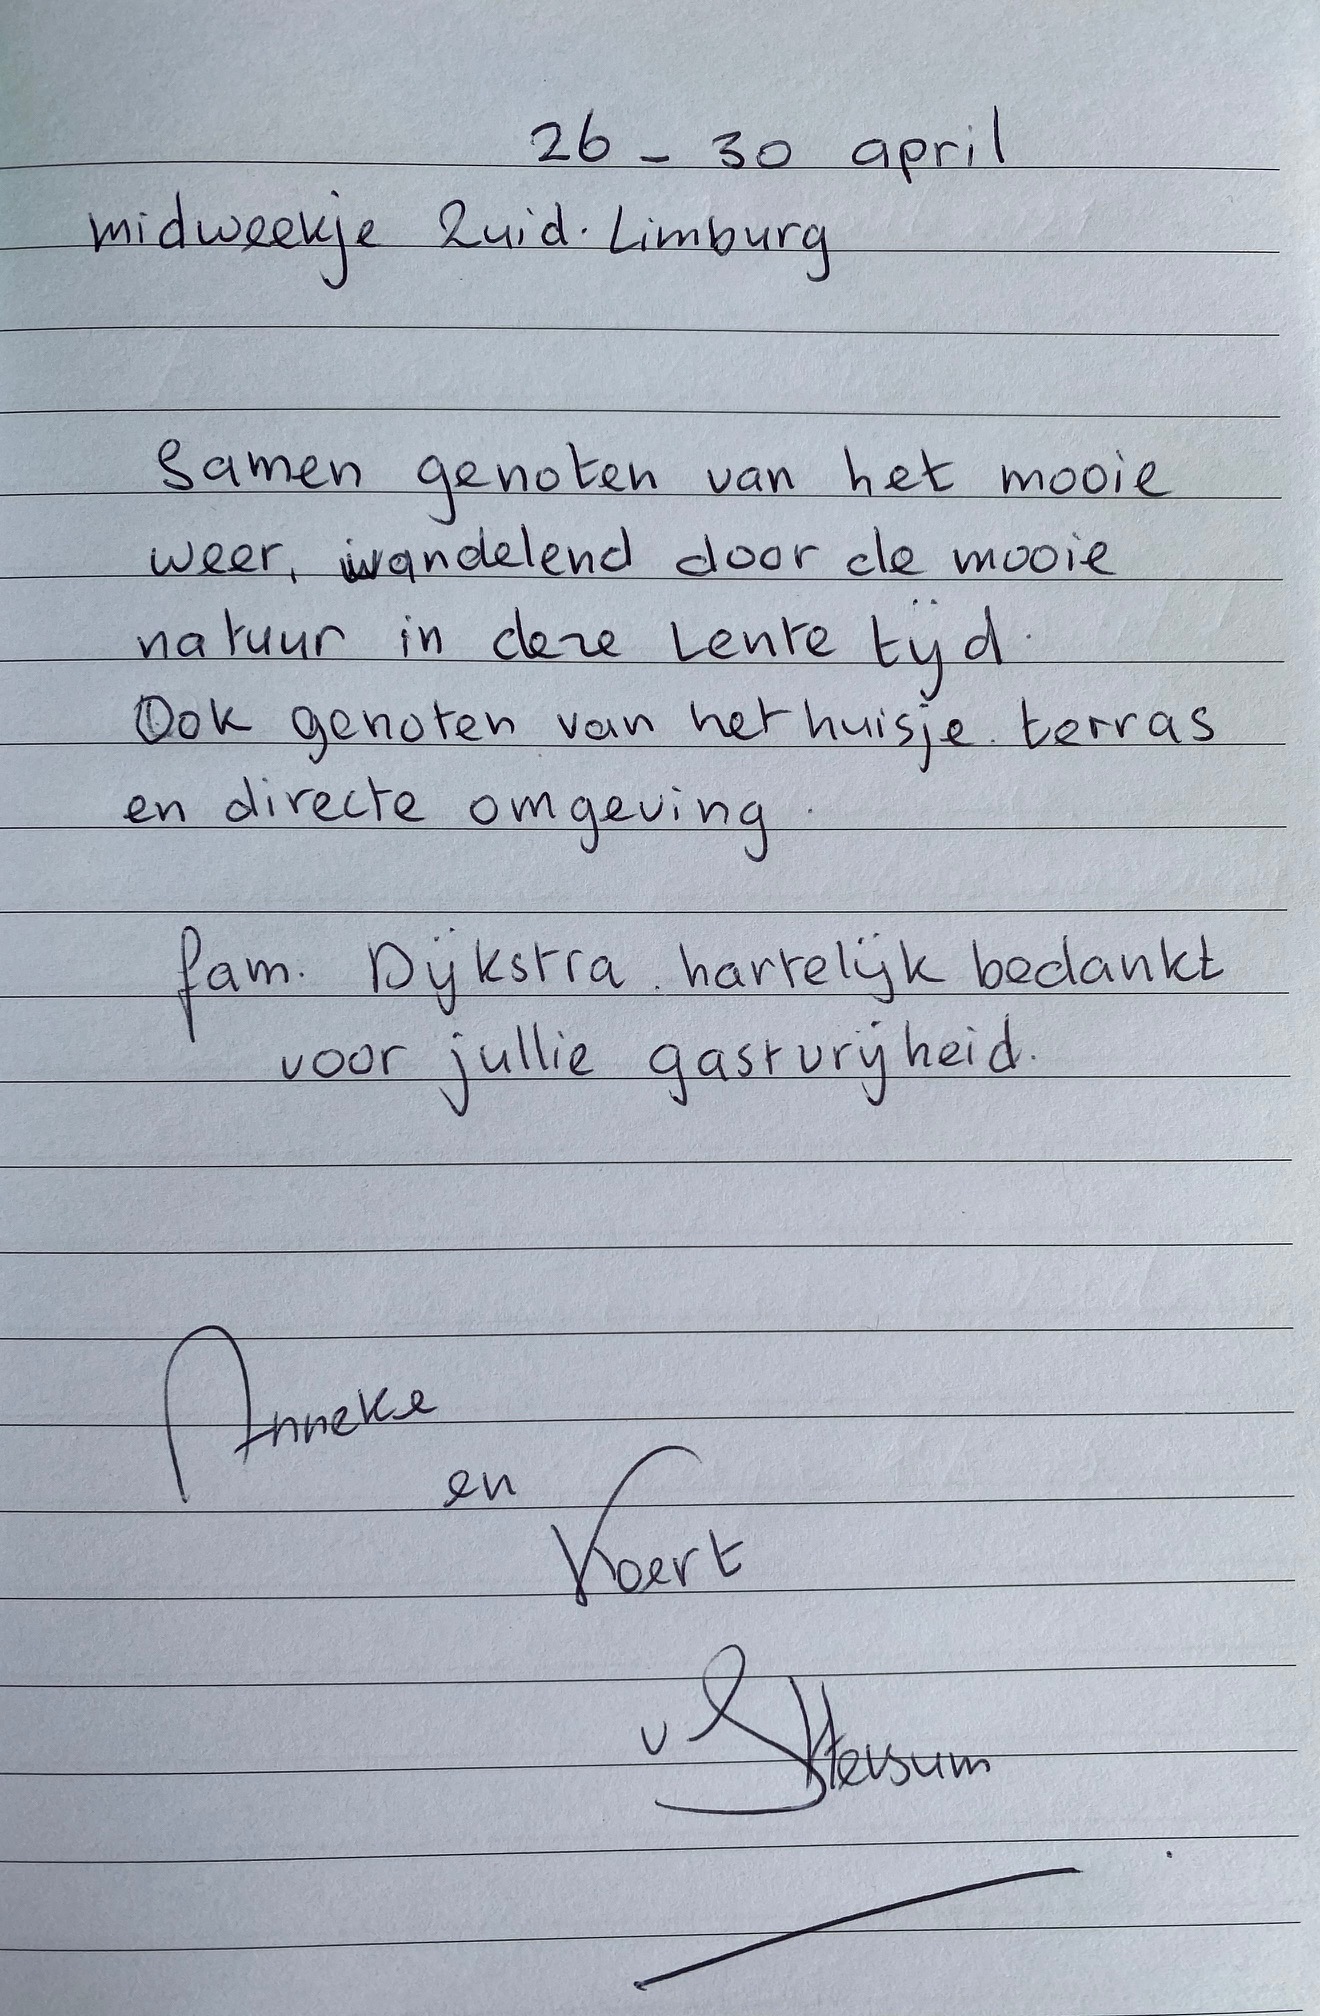 26 - 30 april
midweekje Zuid. Limburg
Samen genoten van het mooie
weer, wandelend door de mooie
natuur in deze Lente tijd.
Ook genoten van het huisje. terras
en directe omgeving.
fam. Dijkstra. hartelijk bedankt
voor jullie gastvrijheid.
Anneke
en
Koert
v